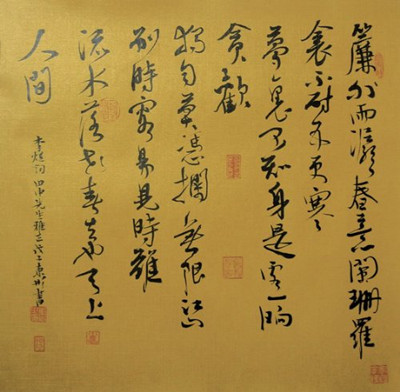 簾外雨潺潺春意闌珊羅
衾不耐五更寒
夢裏不知身是客一晌
貪歡
獨自莫憑欄無限江山
別時容易見時難
流水落花春去也天上
人間
李煜詞 田中先生雅正 書